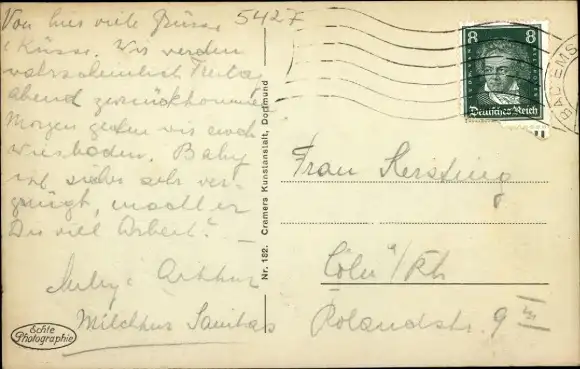 Von hier viele Grüsse
5427
+ Küsse. Wir werden
wahrscheinlich Freitag
Abend zurückkommen
Morgen gehen wir nach
Wiesbaden. Baby
ist sicher sehr ver-
gnügt, macht er
Dir viel Arbeit?
Arthur
Milchkur Sanitas
Echte
Photographie
Nr. 182. Cramers Kunstanstalt, Dortmund
8 8
Deutsches Reich
BAD EMS
Frau Kersting
Cöln a/Rh
Rolandstr. 9 III